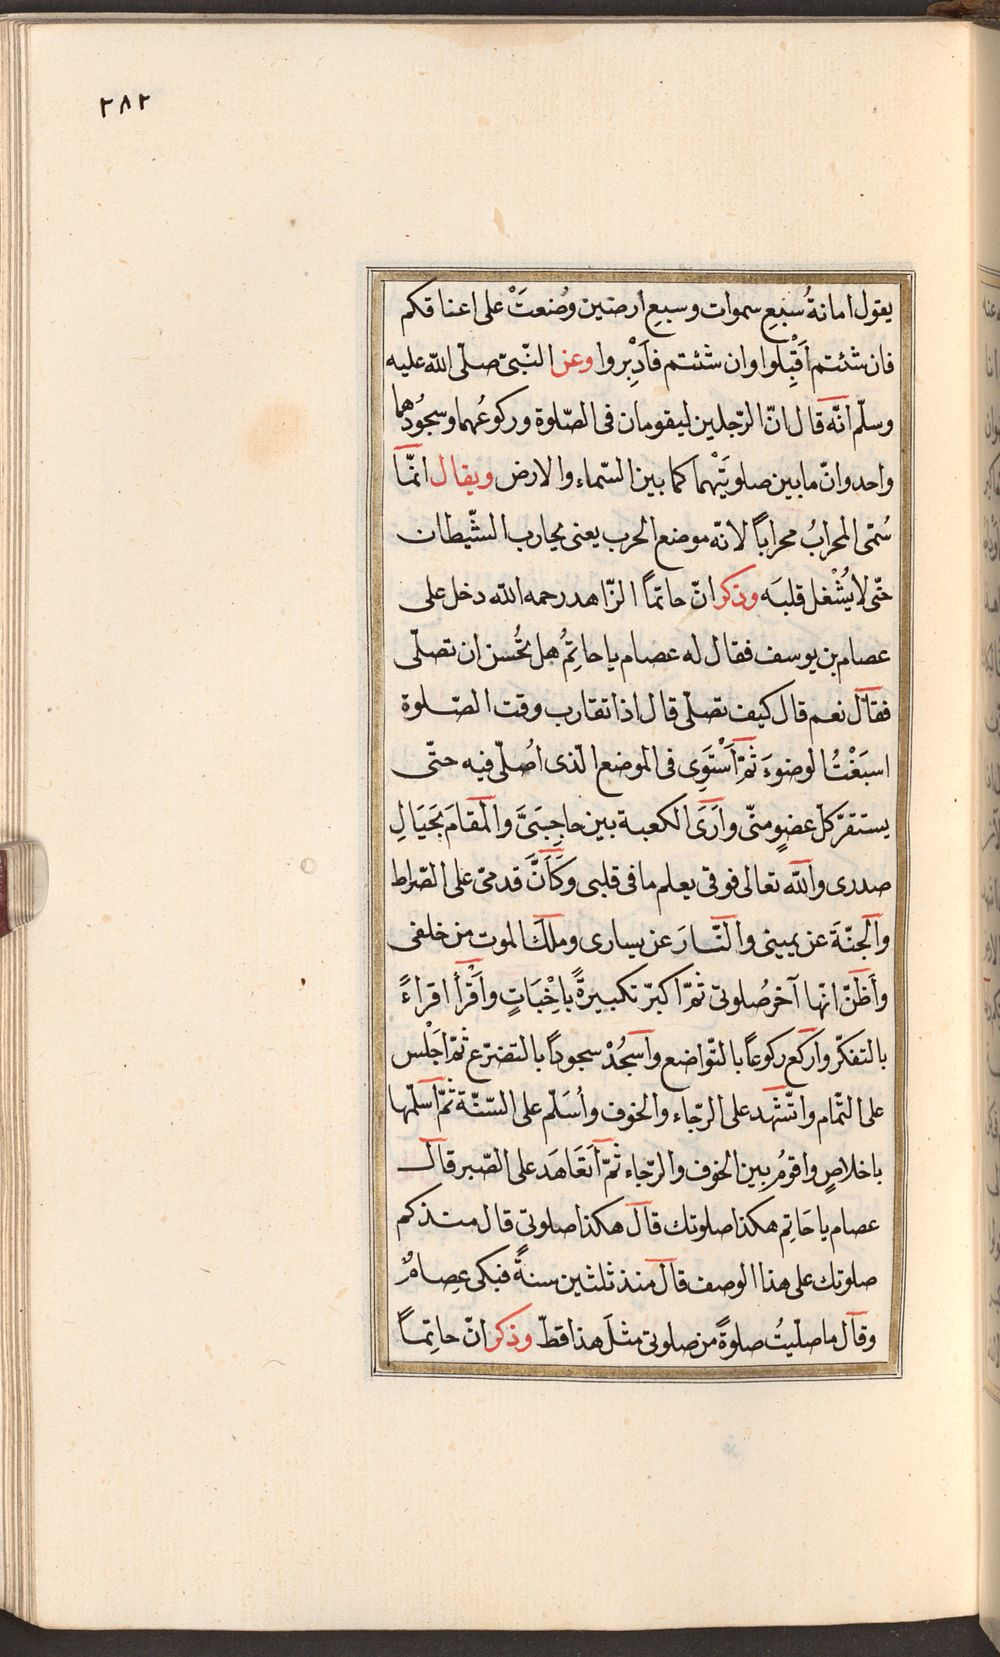 ٢٨٢
يقول امانةُ سَبْعِ سموات وسبعِ ارضين وُضعَتْ على اعناقكم
فان شئتم اَقْبِلوا وان شئتم فاَدْبِروا وعن النّبىّ صلّى اللّه عليه
وسلّم انّه قال انّ الرّجلين ليقومان فى الصّلوة وركوعُهما وسجودُهما
واحد وانّ ما بين صلوتَيْهما كما بين السّماء والارض ويقال انّما
سُمّى المحرابُ محراباً لانّه موضع الحرب يعنى يحارب الشّيطان
حتّى لا يُشْغل قلبَه وذكر انّ حاتمًا الزّاهد رحمه اللّه دخل على
عصام بن يوسف فقال له عصام يا حاتِمُ هل تُحْسن ان تصلّى
فقال نعم قال كيف تصلّى قال اذا تقارب وقت الصّلوة
اسبَغْتُ الوضوءَ ثمّ اَسْتَوِى فى الموضع الّذى اُصلّى فيه حتّى
يستقرّ كلّ عضوٍ منّى واَرَى الكعبة بين حاجِبَىَّ والمقامَ بحَيَالِ
صدرى واللّه تعالى فوقى يعلم ما فى قلبى وكَاَنَّ قدمىّ على الصّراط
والجنّةَ عن يمينى والنّارَ عن يسارى وملكَ الموت من خلفى
وأَظنّ انّها آخر صلوتى ثمّ اكبرّ تكبيرةً باِخْبَاتٍ واَقْرأ قراءةً
بالتفكّر واركع ركوعاً بالتّواضع واَسجُدْ سجوداً بالتضرّع ثمّ اجْلس
على التّمام واتّشهّد على الرّجاء والخوف واُسَلّم على السّنّة ثمّ اسلّمها
باخلاصٍ واقومُ بين الخوف والرّجاء ثمّ اَتعَاهَد على الصّبر قال
عصام يا حَاتِم هكذا صلوتك قال هكذا صلوتى قال منذ كم
صلوتك على هذا الوصف قال منذ ثلثين سنةً فبكى عِصامٌ
وقال ما صلّيتُ صلوةً من صلوتى مثلَ هذا قطّ وذكر انّ حاتِماً